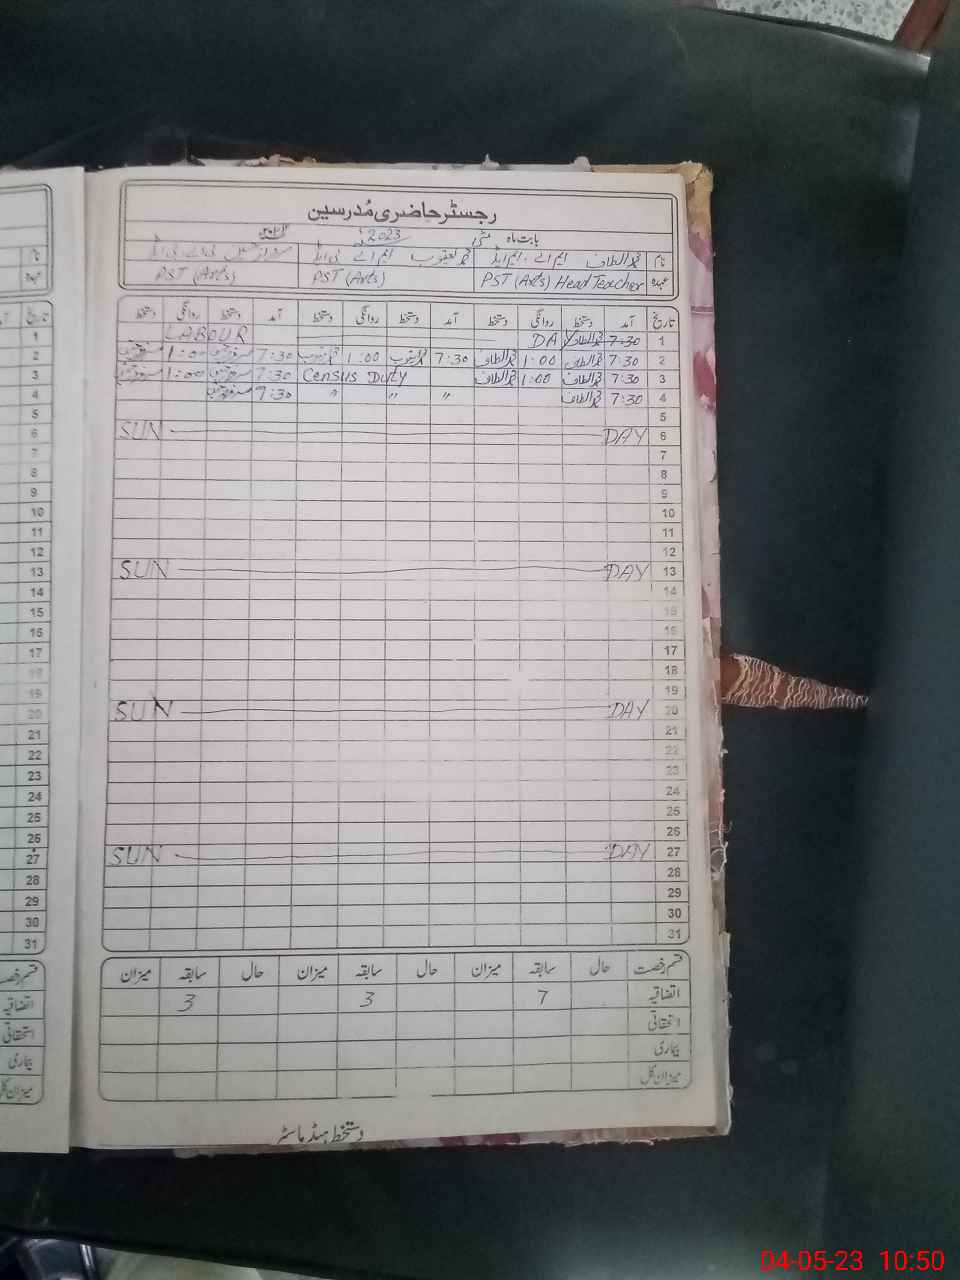 رجسٹر حاضری مُدرسین
بابت ماہ مئی 2023
نام محمد الطاف ایم اے، ایم ایڈ محمد یعقوب ایم اے بی ایڈ بی اے، بی ایڈ
عہدہ PST (Arts) Head Teacher PST (Arts) PST (Arts)
تاریخ آمد دستخط روانگی دستخط آمد دستخط روانگی دستخط آمد دستخط روانگی دستخط
1 7:30 محمد الطاف LABOUR DAY
2 7:30 محمد الطاف 1:00 محمد الطاف 7:30 محمد یعقوب 1:00 محمد یعقوب 7:30 1:00
3 7:30 محمد الطاف 1:00 محمد الطاف Census Duty 7:30 1:00
4 7:30 محمد الطاف " " " 7:30
5
6 SUN DAY
7
8
9
10
11
12
13 SUN DAY
14
15
16
17
18
19
20 SUN DAY
21
22
23
24
25
26
27 SUN DAY
28
29
30
31
قسم رخصت حال سابقہ میزان حال سابقہ میزان حال سابقہ میزان
اتفاقیہ 7 3 3
استحقاقی
بیماری
میزان کل
دستخط ہیڈ ماسٹر
تاریخ
نام
عہدہ
1
2
3
4
5
6
7
8
9
10
11
12
13
14
15
16
17
18
19
20
21
22
23
24
25
26
27
28
29
30
31
قسم رخصت
اتفاقیہ
استحقاقی
بیماری
میزان کل
04-05-23 10:50